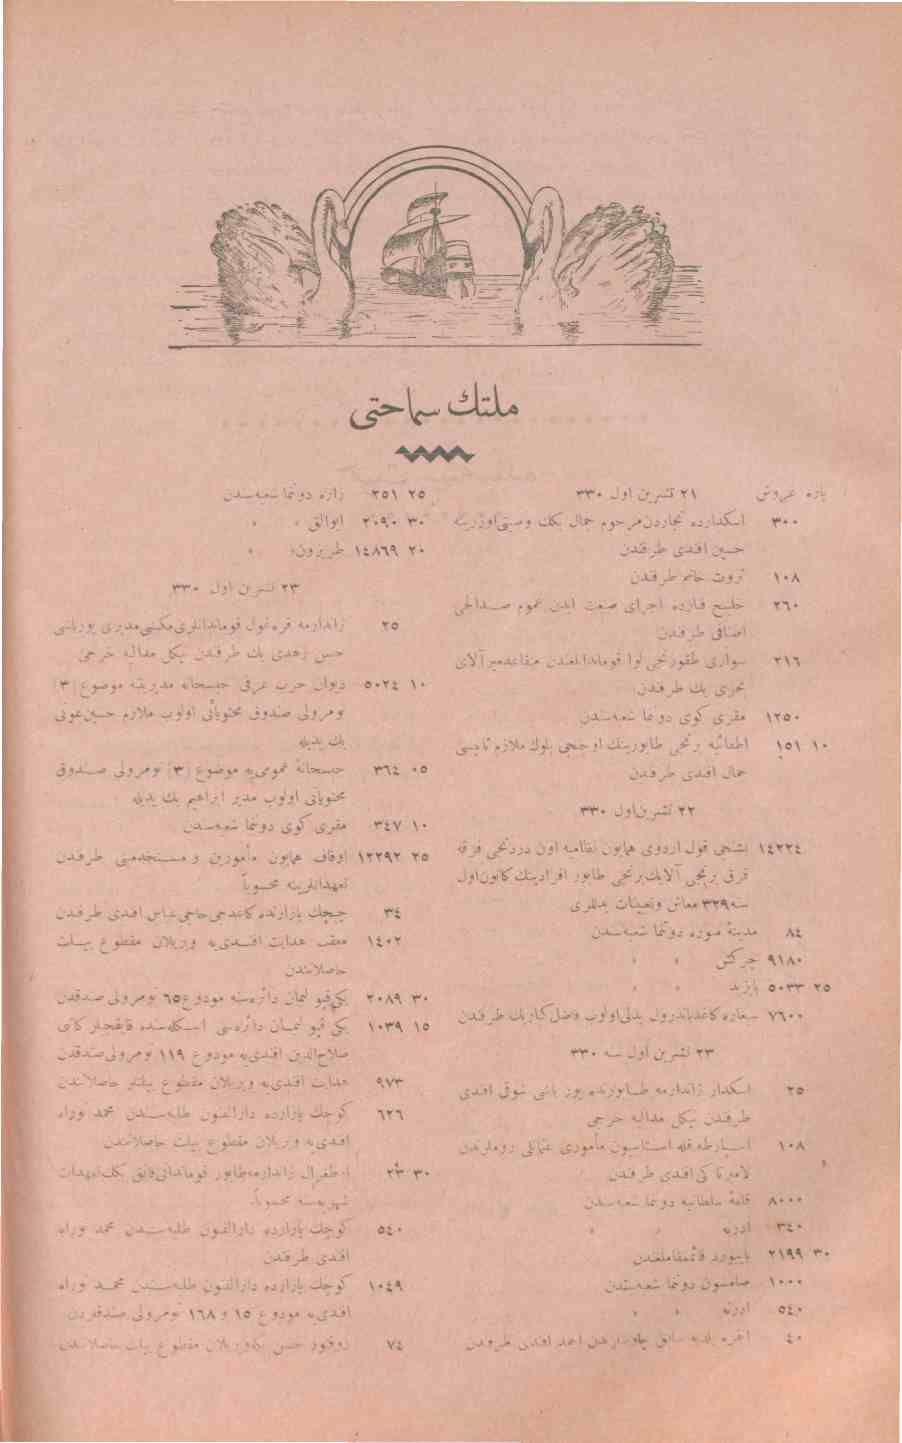 ملتك سماحتی
پاره غروش ٢١ تشرین اول ٣٣٠
٣٠٠ اسكدارده تجاردن مرحوم جمال بكك وصیتی اوزرینه
حسین افندی طرفندن
١٠٨ ثروت خانم طرفندن
٢٦٠ خلیج فنارده اجرای صنعت ایدن عموم صندالجی
اصنافی طرفندن
٢١٦ سواری طقوزنجی لوا قوماندانلغندن متقاعد میرآلای
بحری بك طرفندن
١٢٥٠ مقری كوی دوننما شعبه‌سندن
١٠ ١٥١ اطفائیه برنجی طابورینك اوچنجی بلوك ملازم ثانیسی
جمال افندی طرفندن
٢٢ تشرین اول ٣٣٠
١٤٢٢٤ بشنجی قول اردوی همایون نظامیه اون دردنجی فرقه
قرق برنجی آلایك برنجی طابور افرادینك كانون اول
سنه ٣٢٩ معاش وتعیینات بدللری
٨٤ مدینهٔ منوره دوننما شعبه‌سندن
٩١٨٠ چركش » »
٢٥ ٥٠٣٣ بایزید » »
٧٦٠٠ سیغاره كاغد باندرول بدلی اولوب فاضل كتار بك طرفندن
٢٣ تشرین اول سنه ٣٣٠
٢٥ اسكدار ژاندارمه طابورنده یوز باشی شوقی افندی
طرفندن نیكل مدالیه خرجی
١٠٨ اسپارطه قله استاسیون مأموری عثمانلی روملرندن
افندی طرفندن
٨٠٠٠ قلعهٔ سلطانیه دوننما شعبه‌سندن
٣٤٠ ادرنه » »
٣٠ ٢١٩٩ بایبورد قائممقاملغندن
١٠٠٠ صامسون دوننما شعبه‌سندن
٥٤٠ ادرنه » »
٤٠ سابق احمد افندی طرفندن
٢٥ ٢٥١ زازه دوننما شعبه‌سندن
٣٠ ٢٠٩٠ ایوالق » »
٢٠ ١٤٨٦٩ طربزون » »
٢٣ تشرین اول ٣٣٠
٢٥ ژاندارمه قره‌غول قوماندانلری مكتبی مدیری یوزباشی
حسن زهدی بك طرفندن نیكل مدالیه خرجی
١٠ ٥٠٢٤ دیوان حرب عرفی حبسخانه مدیریتنه موضوع [٣]
نومرولی صندوق محتویاتی اولوب ملازم حسین عونی
بك یدیله
٠٥ ٣٦٤ حبسخانهٔ عمومی‌یه موضوع [٣] نومرولی صندوق
محتویاتی اولوب مدیر ابراهیم بك یدیله
١٠ ٣٤٧ مقری كوی دوننما شعبه‌سندن
٢٥ ١٢٢٩٢ اوقاف همایون مأمورین ومستخدمینی طرفندن
تعهداتلرینه محسوباً
٣٤ چیچك بازارنده كاغدجی حاجی عباس افندی طرفندن
١٤٠٢ معقب هدایت افندی‌یه ویریلان مقطوع بیلت
حاصلاتندن
٣٠ ٢٠٨٩ یكی‌قپو لیمان دائره‌سنه مودوع ٦٥ نومرولی صندقدن
١٥ ١٠٣٩ یكی قپو لیمان دائره‌سی اسكله‌سنده قایقجیلر كاتبی
صلاح‌الدین افندی‌یه مودوع ١١٩ نومرولی صندقدن
٩٧٣ هدایت افندی‌یه ویریلان مقطوع بیلتلر حاصلاتندن
٦٢٦ كوچك بازارده دارالفنون طلبه‌سندن محمد نوراه
افندی‌یه ویریلان مقطوع بیلت حاصلاتندن
٣٠ ٢٣ ارطغرل ژاندارمه طابور قوماندانی فایق بكك تعهدات
شهریه‌سنه محسوباً
٥٤٠ كوچك بازارده دارالفنون طلبه‌سندن محمد نوراه
افندی طرفندن
١٠٤٩ كوچك بازارده دارالفنون طلبه‌سندن محمد نوراه
افندی‌یه مودوع ١٥ و ١٦٨ نومرولی صندقلردن
٧٤ حسن بكه ویریلان مقطوع بیلت حاصلاتندن